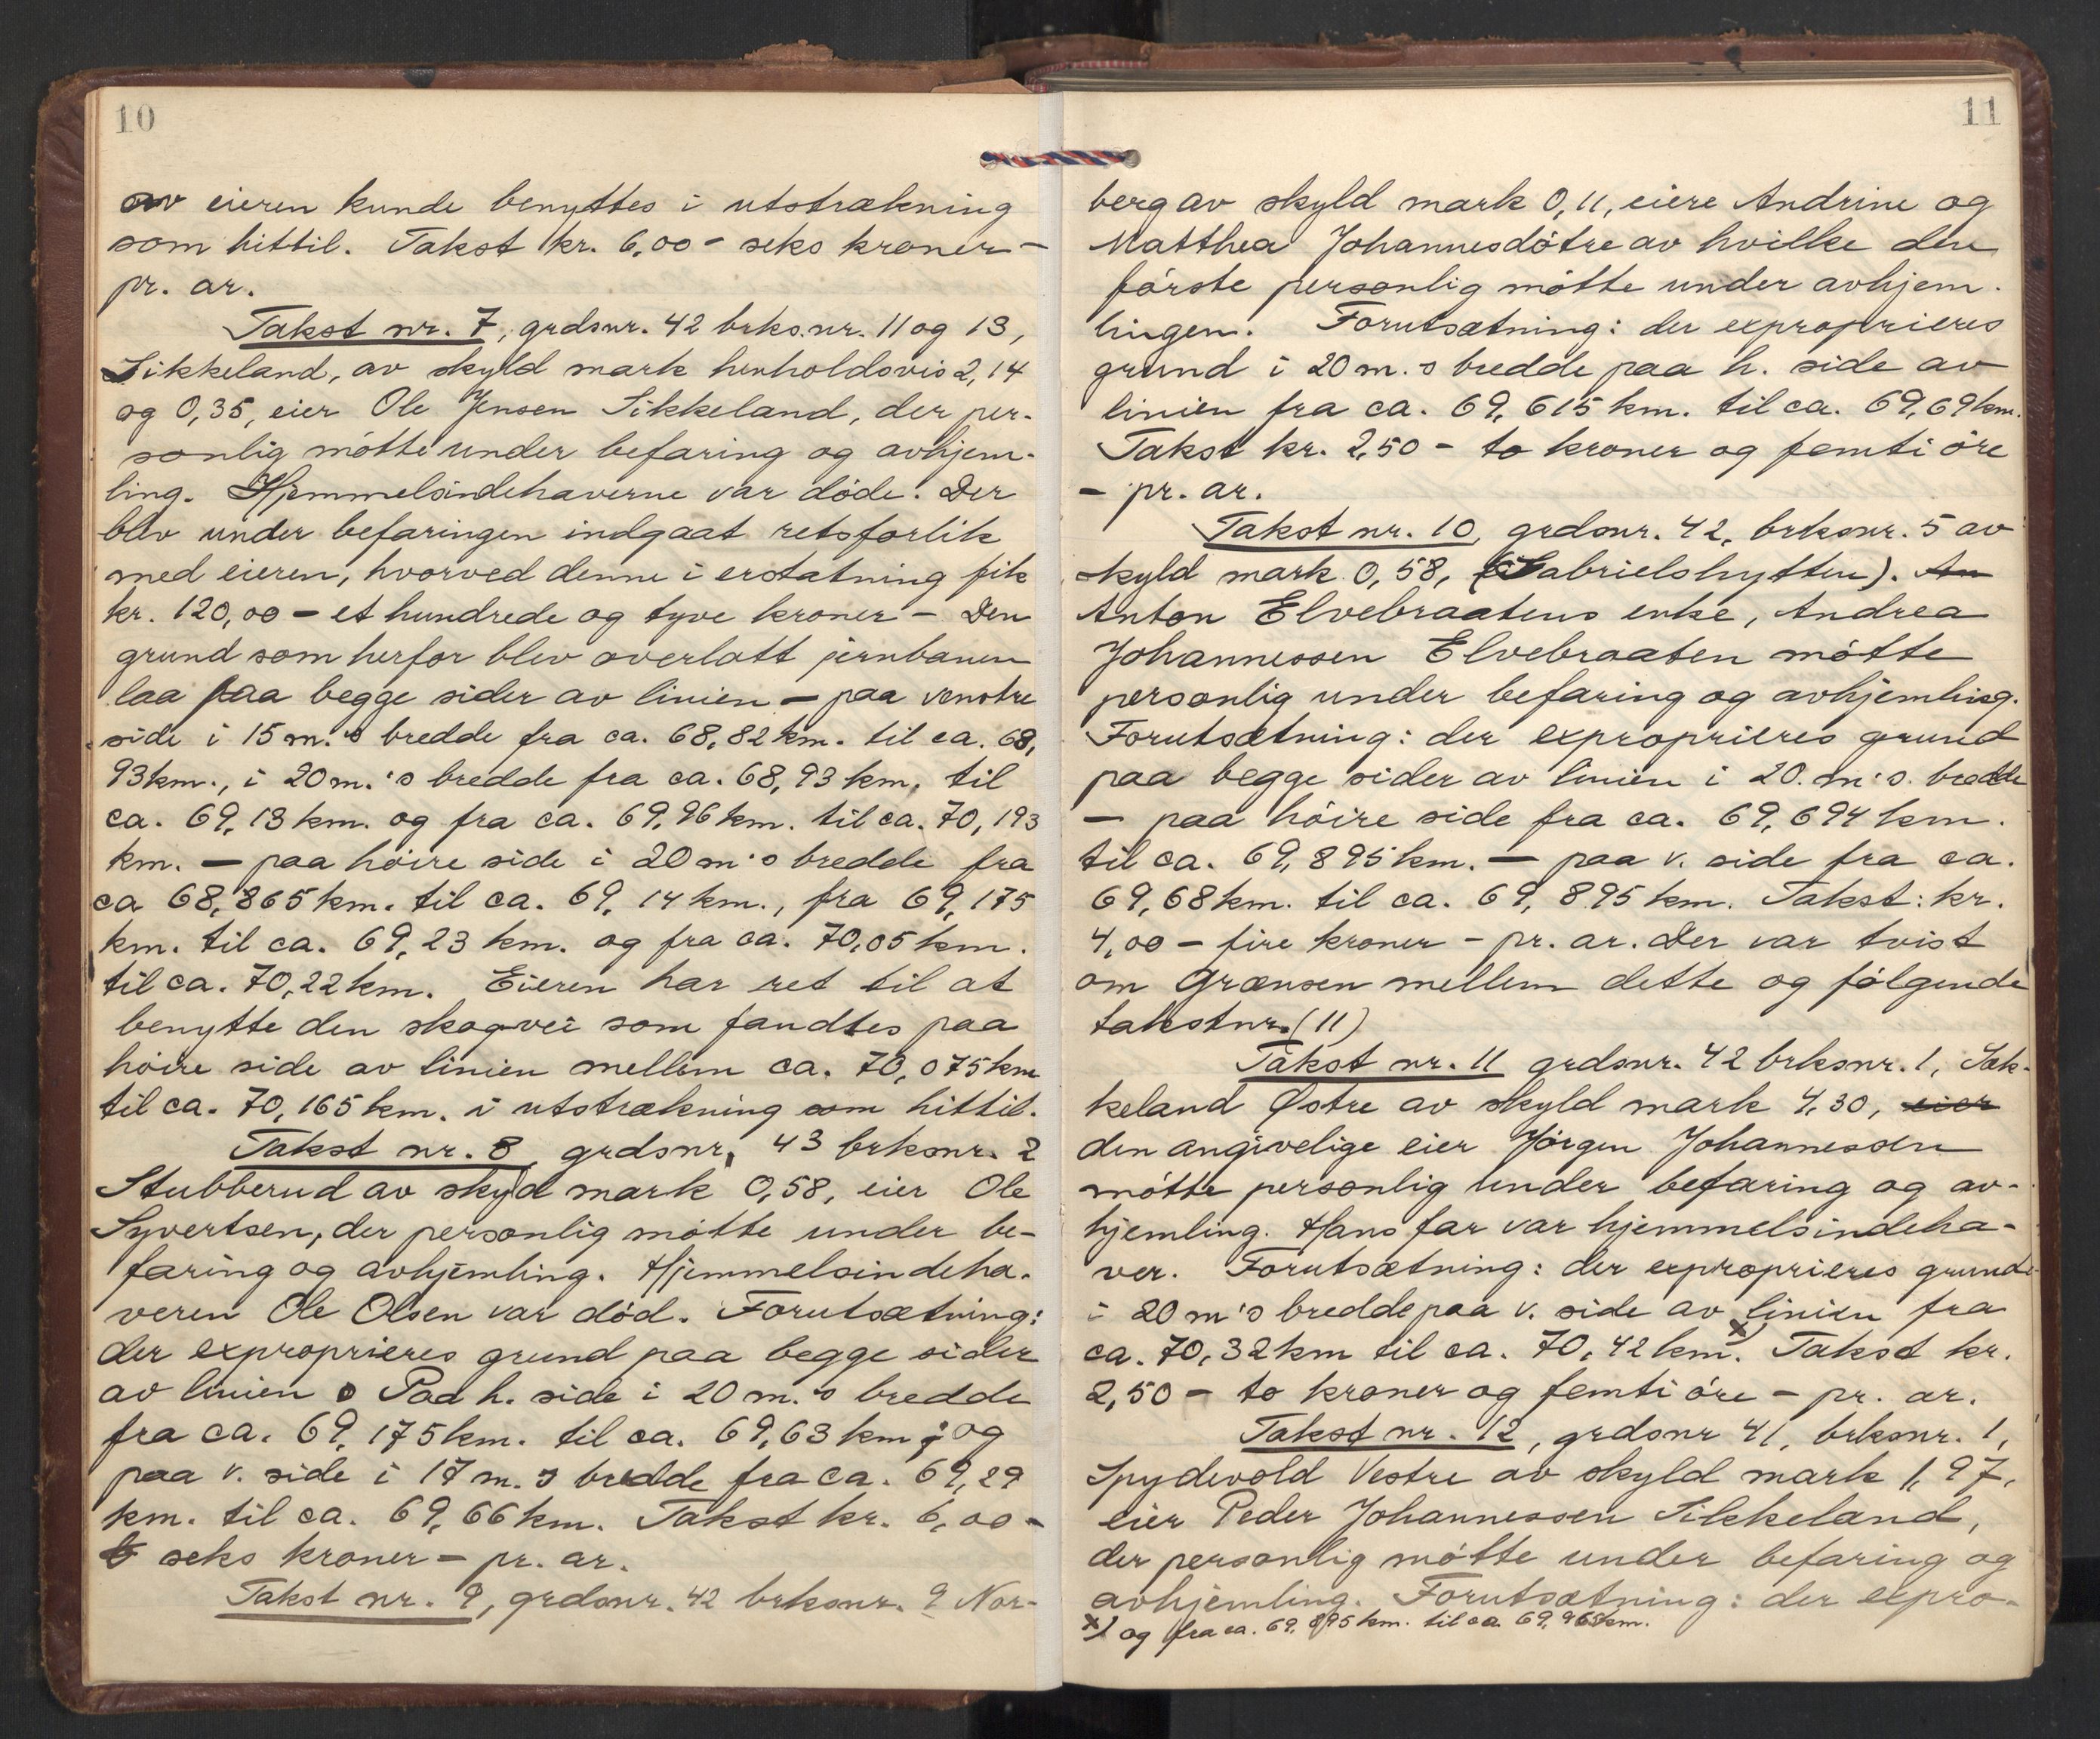 10
av eieren kunde benyttes i utstrækning
som hittil. Takst kr. 6,00 - seks kroner -
pr. ar.
Takst nr. 7, grdsnr. 42 brks.nr. 11 og 13,
Sikkeland, av skyld mark henholdsvis 2,14
og 0,35, eier Ole Jensen Sikkeland, der per-
sonlig møtte under befaring og avhjem-
ling. Hjemmelsindehaverne var døde. Der
blev under befaringen indgaat retsforlik
med eieren, hvorved denne i erstatning fik
kr. 120,00 - et hundrede og tyve kroner - Den
grund som herfor blev overlatt jernbanen
laa paa begge sider av linien - paa venstre
side i 15 m.'s bredde fra ca. 68,82 km. til ca. 68,
93 km., i 20 m.'s bredde fra ca. 68,93 km, til
ca. 69,13 km. og fra ca. 69,96 km. til ca. 70,193
km. - paa høire side i 20 m's bredde fra
ca 68,865 km. til ca. 69,14 km., fra 69,175
km. til ca. 69,23 km. og fra ca. 70,05 km.
til ca. 70,22 km. Eieren har ret til at
benytte den skogvei som fandtes paa
høire side av linien mellem ca. 70,075 km
til ca. 70,165 km. i utstrækning som hittil.
Takst nr. 8, grdsnr. 43 brksnr. 2
Stubberud av skyld mark 0,58, eier Ole
Syvertsen, der personlig møtte under be-
faring og avhjemling. Hjemmelsindeha-
veren Ole Olsen var død. Forutsætning:
der exproprieres grund paa begge sider
av linien. Paa h. side i 20 m.'s bredde
fra ca. 69,175 km. til ca. 69,63 km; og
paa v. side i 17 m.s bredde fra ca. 69,29
km. til ca. 69,66 km. Takst kr. 6,00 -
seks kroner - pr. ar.
Takst nr. 9, grdsnr. 42 brksnr. 9 Nor-
11
berg av skyld mark 0,11, eiere Andrine og
Matthea Johannesdøtre av hvilke den
første personlig møtte under avhjem-
lingen. Forutsætning: der exproprieres
grund i 20 m.s bredde paa h. side av
linien fra ca. 69,615 km. til ca. 69,69 km.
Takst kr. 2,50 - to kroner og femti øre
- pr. ar.
Takst nr. 10, grdsnr. 42, brksnr. 5 av
skyld mark 0,58, (Gabrielshytten). An
Anton Elvebraatens enke, Andrea
Johannessen Elvebraaten møtte
personlig under befaring og avhjemling.
Forutsætning: der exproprieres grund
paa begge sider av linien i 20. m's. bredde
- paa høire side fra ca. 69,694 km.
til ca. 69,895 km. - paa v. side fra ca.
69,68 km. til ca. 69,895 km. Takst: kr.
4,00 - fire kroner - pr. ar. Der var tvist
om Grænsen mellem dette og følgende
takstnr. (11)
Takst nr. 11 grdsnr. 42 brksnr. 1, Sik-
keland Østre av skyld mark 4,30, eier
den angivelige eier Jørgen Johannessen
møtte personlig under befaring og av-
hjemling. Hans far var hjemmelsindeha-
ver. Forutsætning: der exproprieres grund
i 20 m's bredde paa v. side av linien fra
ca. 70,32 km til ca. 70,42 km x). Takst kr.
2,50 - to kroner og femti øre - pr. ar.
Takst nr. 12, grdsnr 41, brksnr. 1,
Spydevold Vestre av skyld mark 1,97,
eier Peder Johannessen Sikkeland,
der personlig møtte under befaring og
avhjemling. Forutsætning: der expro-
x) og fra ca. 69,895 km. til ca 69,965 km.